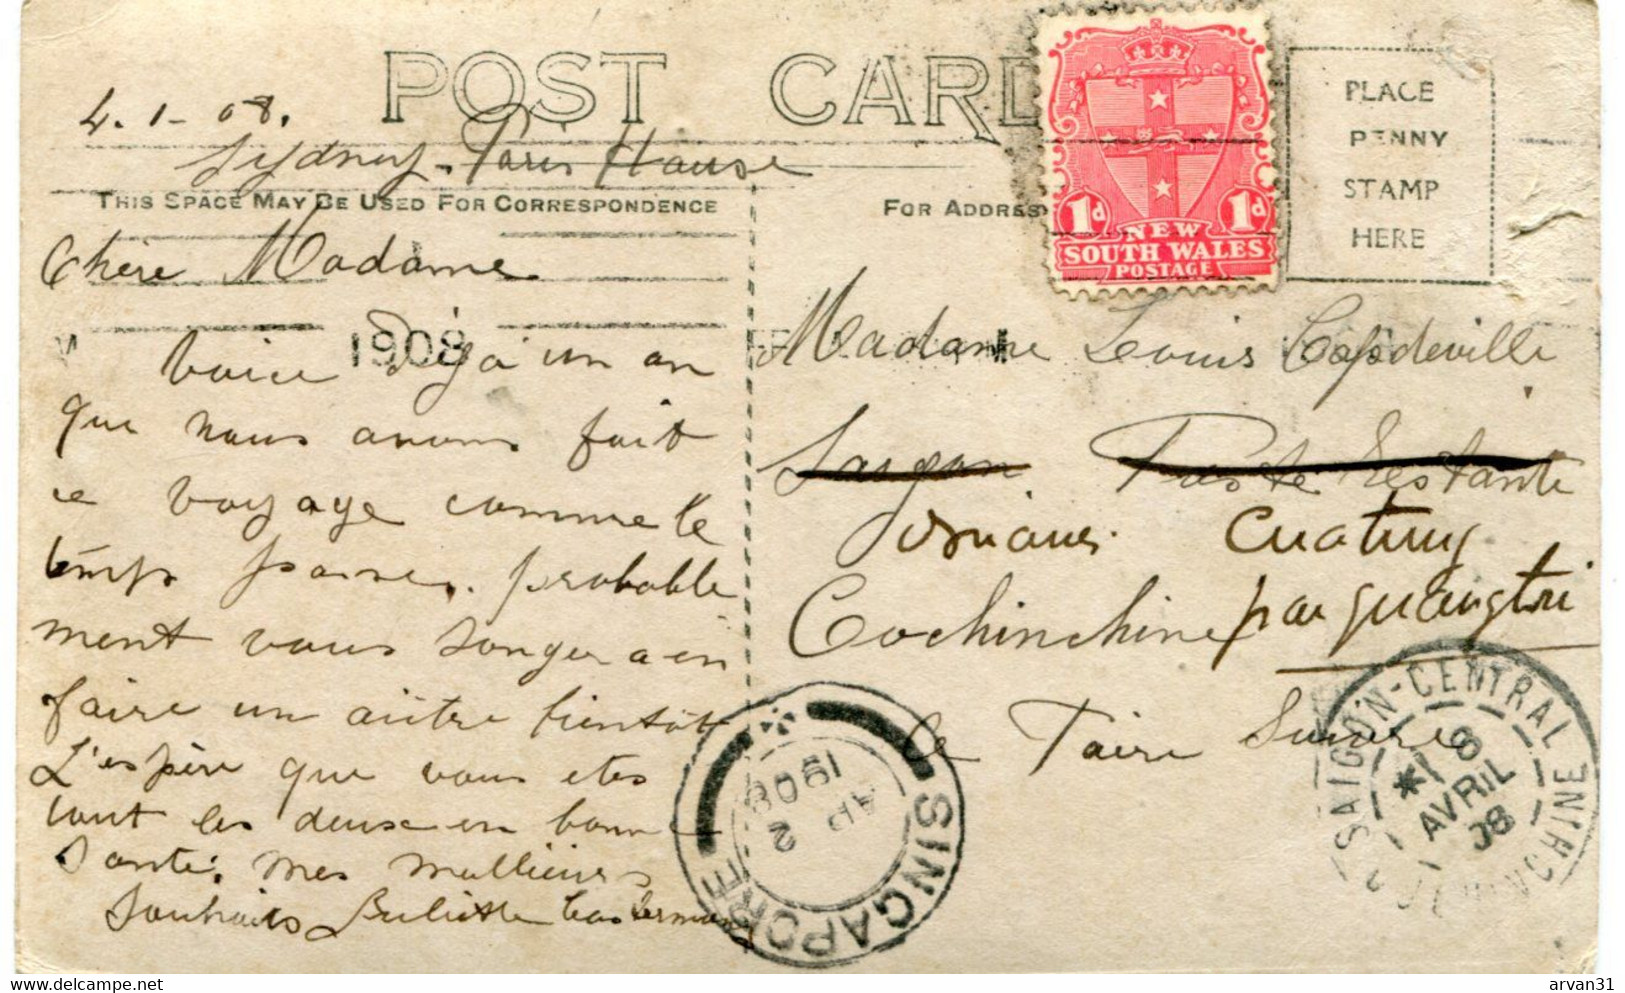 POST CARD
4.1-08.
Sydney-Paris House
THIS SPACE MAY BE USED FOR CORRESPONDENCE
Chère Madame
1908
Voice déjà un an
que nous avons fait
ce voyage comme le
temps passe, probable
ment vous songer a en
faire un aûtre bientôt
L'espère que vous etes
tout les deux en bonne
Santé. Mes meilleurs
Souhaits Juliette
FOR ADDRESS
1d 1d
NEW
SOUTH WALES
POSTAGE
PLACE
PENNY
STAMP
HERE
Madame Louis Capdeville
Saigon Poste Restante
Cuatung
Cochinchine par Quangtri
Faire Suivre
SINGAPORE
2
AP
1908
SAIGON-CENTRAL
8
AVRIL
08
COCHINCHINE
arvan31